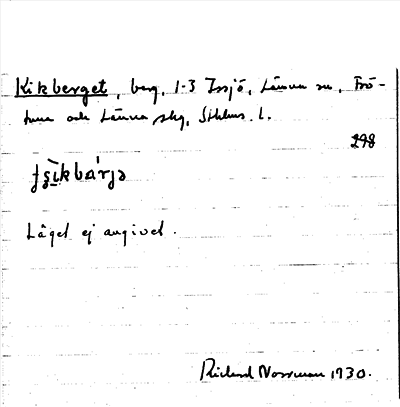 Kikberget, berg, 1-3 Issjö, Länna sn, Frö-
tuna och Länna skg, Sthlms l.
298
Läget ej angivet.
Rickard Norrman 1930.